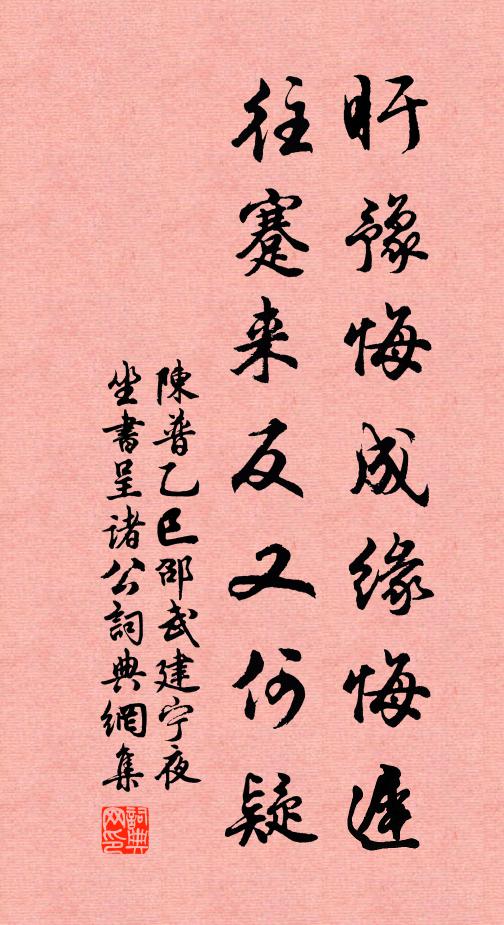 盱豫悔成缘悔遲
往蹇来反又何疑
陳普乙巳邵武建宁夜
坐書呈诸公詞典網集
詞典网印